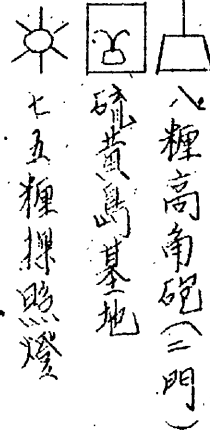 八糎高角砲(二門)
硫黄島基地
七五糎探照燈